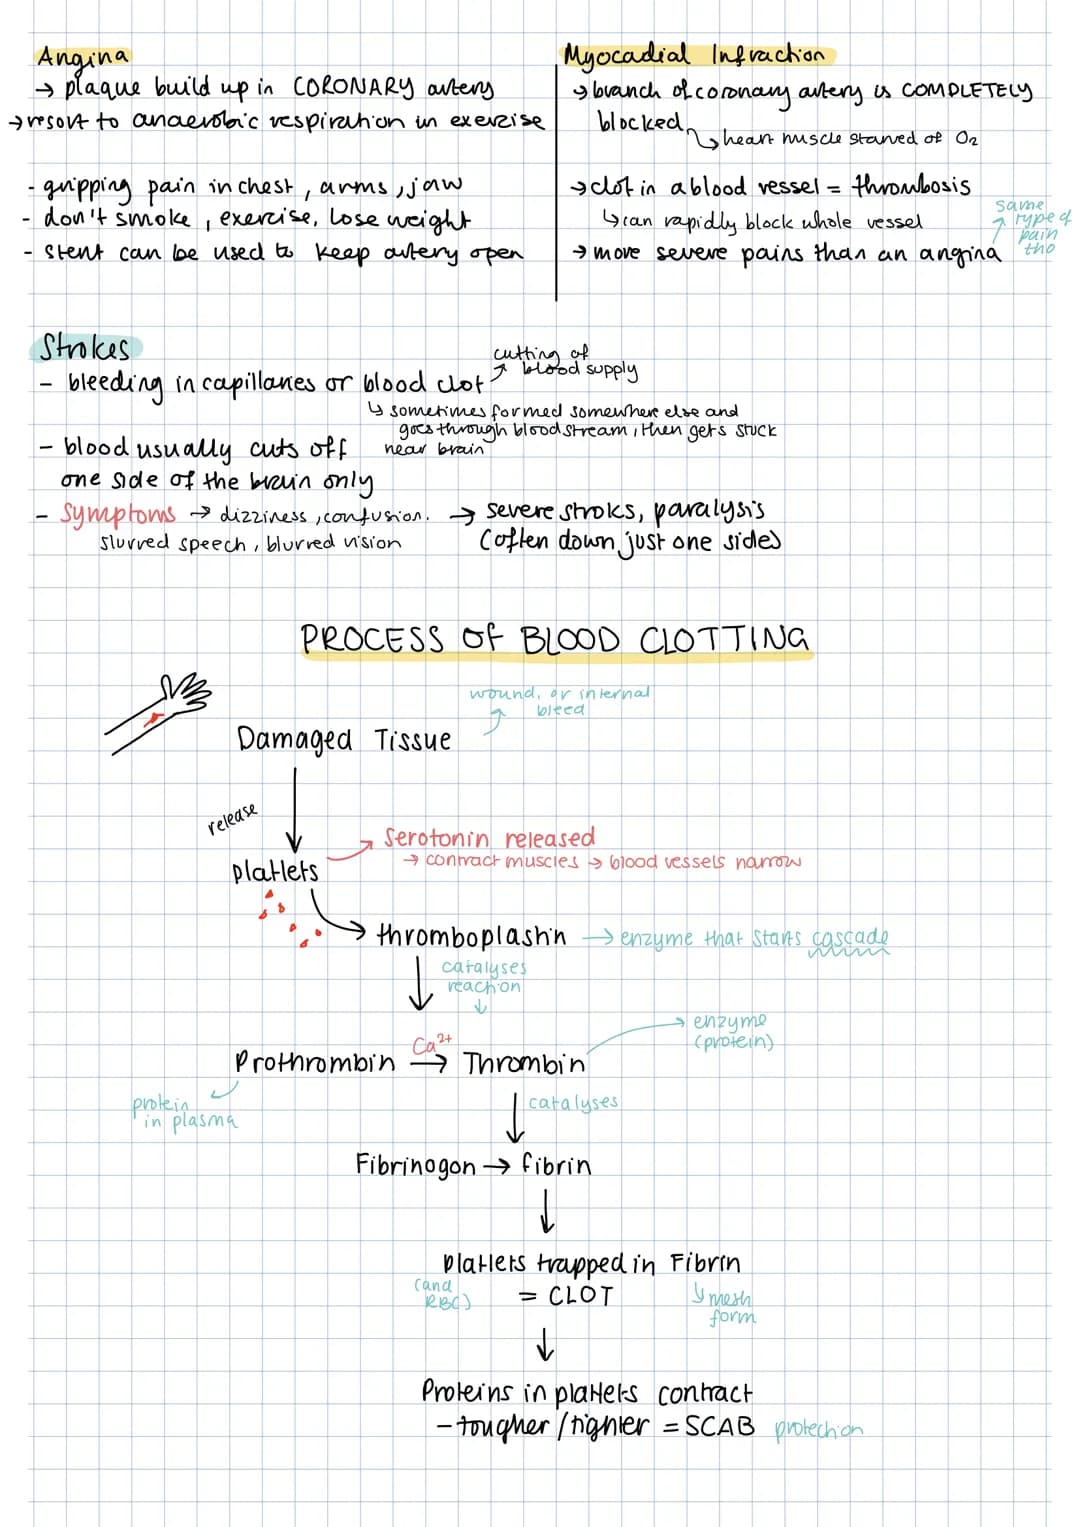 Angina
→ plaque build up in CORONARY artery
→ resort to anaerobic respiration in exercise
- gripping pain in chest, arms, jaw
- don't smoke, exercise, lose weight
- stent can be used to keep artery open
Myocadial Infraction
→ branch of coronary artery is COMPLETELY
blocked
↳ heart muscle starved of O2
→ clot in a blood vessel = thrombosis
↳ can rapidly block whole vessel
→ more severe pains than an angina
same
type of
pain
tho
Strokes
- bleeding in capillaries or blood clot
cutting of
blood supply
↳ sometimes formed somewhere else and
goes through bloodstream, then gets stuck
near brain
- blood usually cuts off
one side of the brain only
- Symptoms → dizziness, confusion.
slurred speech, blurred vision
→ severe stroks, paralysis
(often down just one sides)
PROCESS OF BLOOD CLOTTING
wound, or internal
bleed
Damaged Tissue
release
platlets
Serotonin released
→ contract muscles → blood vessels narrow
thromboplastin → enzyme that starts cascade
catalyses
reaction
Ca2+
Prothrombin → Thrombin
enzyme
(protein)
protein
in plasma
catalyses
Fibrinogon → fibrin
platlets trapped in Fibrin
(and
RBC)
= CLOT
mesh
form
Proteins in platlets contract
- tougher / tighter = SCAB protection